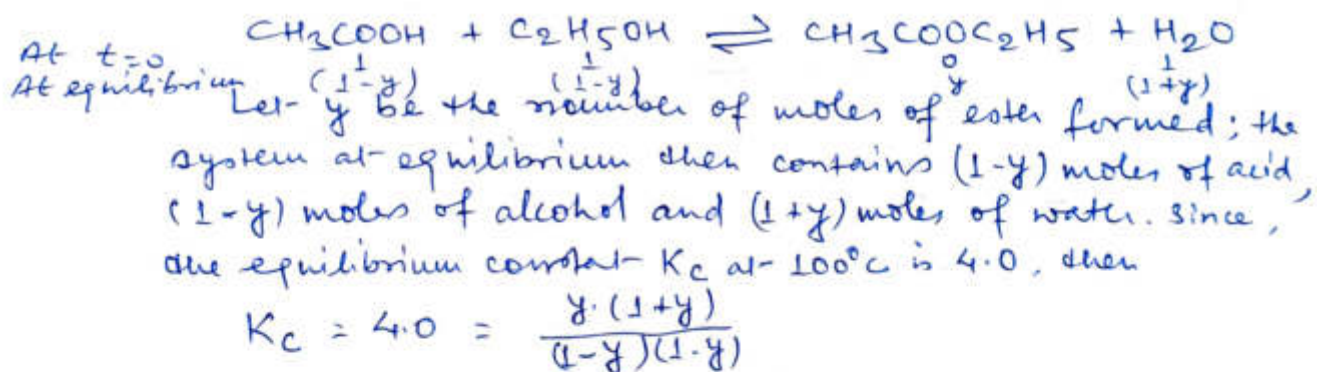 CH3COOH + C2H5OH ⇌ CH3COOC2H5 + H2O
At t=0 1 1 0 1
At equilibrium (1-y) (1-y) y (1+y)
Let y be the number of moles of ester formed; the
system at equilibrium then contains (1-y) moles of acid,
(1-y) moles of alcohol and (1+y) moles of water. Since,
the equilibrium constat Kc at 100°C is 4.0, then
Kc = 4.0 = y.(1+y) / (1-y)(1-y)